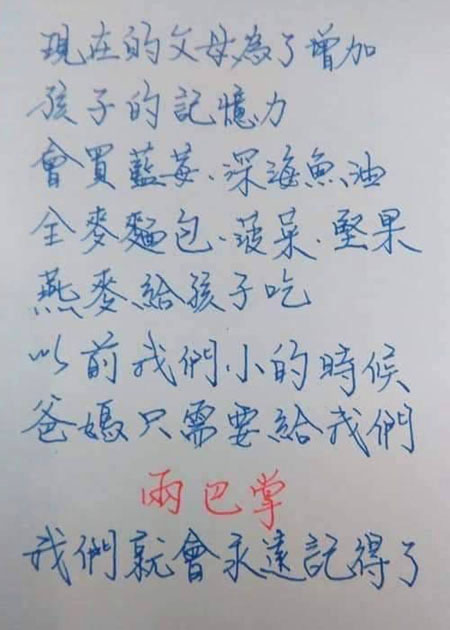 現在的父母為了增加
孩子的記憶力
會買藍莓、深海魚油
全麥麵包、菠菜、堅果
燕麥給孩子吃
以前我們小的時候
爸媽只需要給我們
兩巴掌
我們就會永遠記得了